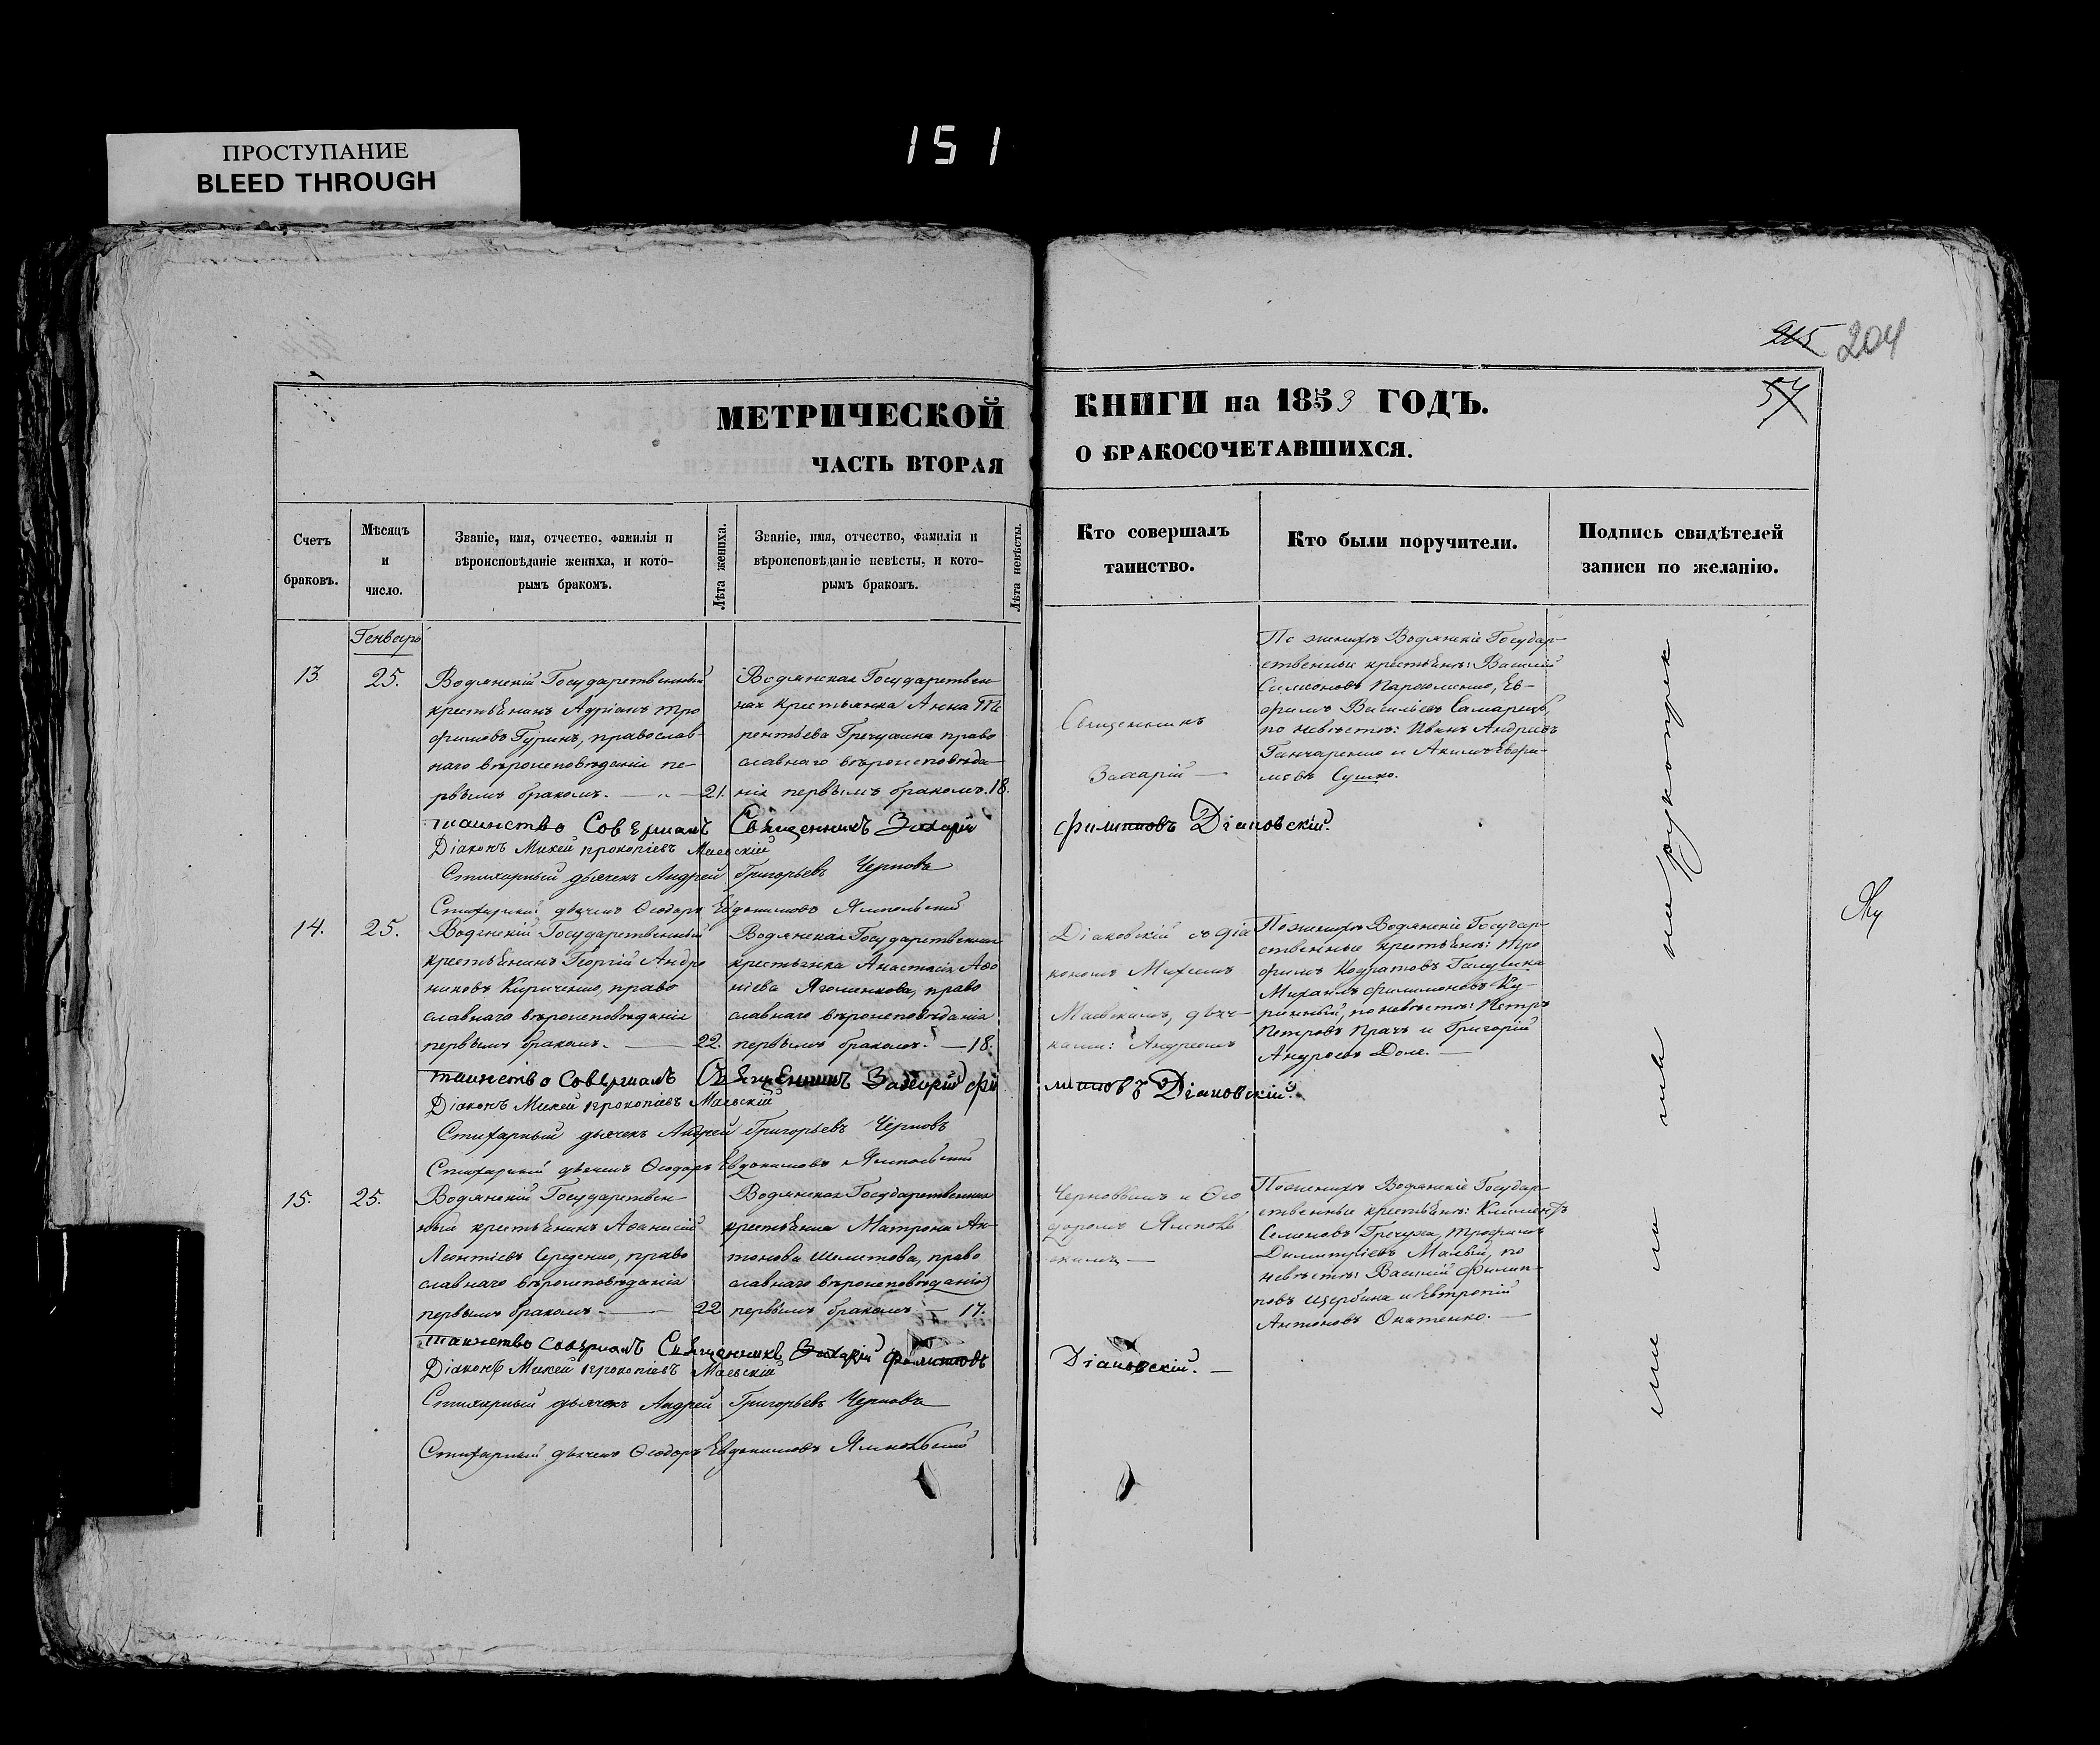 ПРОСТУПАНИЕ
BLEED THROUGH
151
205 204
54
МЕТРИЧЕСКОЙ
ЧАСТЬ ВТОРАЯ
КНИГИ на 1853 ГОДЪ.
О БРАКОСОЧЕТАВШИХСЯ.
Счетъ
браковъ.
Мѣсяцъ
и
число.
Званіе, имя, отчество, фамилія и
вѣроисповѣданіе жениха, и кото-
рымъ бракомъ.
Лѣта жениха.
Званіе, имя, отчество, фамилія и
вѣроисповѣданіе невѣсты, и кото-
рымъ бракомъ.
Лѣта невѣсты.
Кто совершалъ
таинство.
Кто были поручители.
Подпись свидѣтелей
записи по желанію.
Генварь
13.
25.
Водянскій Государственный
крестьѣнинъ Адріанъ Тро
фимовъ Гуринъ, православ-
наго вѣроисповѣданія пе-
рвымъ бракомъ. 21.
Водянская Государствен
ная крестьянка Анна Те
рентьева Гречушна право
славнаго вѣроисповѣда-
нія первымъ бракомъ. 18.
Священникъ
Захарій
По женихѣ Водянскіе Государ-
ственные крестьѣне: Василій
Симеоновъ Пархоменко, Ев-
фимъ Васильевъ Самарецъ,
по невѣстѣ: Иванъ Андреевъ
Ганчаренко и Акимъ Евфи-
мовъ Сушко.
таинство Совершалъ Священникъ Захарій Филиповъ Діаковскій.
Діаконъ Михей Прокопіевъ Маевскій
Стихарный дьячекъ Андрей Григорьевъ Черновъ
Стихарный дьячекъ Ѳеодоръ Евдокимовъ Ямпольскій
14.
25.
Водянскій Государственный
крестьѣнинъ Георгій Андро
никовъ Кириченко, право
славнаго вѣроисповѣданія
первымъ бракомъ. 22.
Водянская Государственная
крестьянка Анастасія Аѳо
ніева Ягоменкова, право
славнаго вѣроисповѣданія
первымъ бракомъ. 18.
Діаковскій съ діа
кономъ Михеемъ
Маевскимъ, дьяч-
ками: Андреемъ
По женихѣ Водянскіе Государ-
ственные крестьѣне: Тро
фимъ Кодратовъ Галушка
Михаилъ Филимоновъ Ку-
ринный, по невѣстѣ: Петръ
Петровъ Прачъ и Григорій
Андреевъ Доле.
таинство совершалъ Священникъ Захарій Филиповъ Діаковскій.
Діаконъ Михей Прокопіевъ Маевскій
Стихарный дьячекъ Андрей Григорьевъ Черновъ
Стихарный дьячекъ Ѳеодоръ Евдокимовъ Ямпольскій
15.
25.
Водянскій Государствен-
ный крестьѣнинъ Аѳанасій
Леонтіевъ Середенко, право
славнаго вѣроисповѣданія
первымъ бракомъ 22
Водянская Государственная
крестьѣнка Матрона Ан-
тонова Шеметова, право
славнаго вѣроисповѣданія
первымъ бракомъ 17.
Черновымъ и Ѳео
доромъ Ямполь
скимъ
По женихѣ Водянскіе Государ-
ственные крестьѣне: Климентъ
Семеновъ Гречуха, Трофимъ
Димитріевъ Малый, по
невѣстѣ: Василій Филип-
повъ Щербина и Евтропій
Антоновъ Охатенко.
таинство совершалъ Священникъ Захарій Филиповъ Діаковскій.
Діаконъ Михей Прокопіевъ Маевскій
Стихарный дьячекъ Андрей Григорьевъ Черновъ
Стихарный дьячекъ Ѳеодоръ Евдокимовъ Ямпольскій